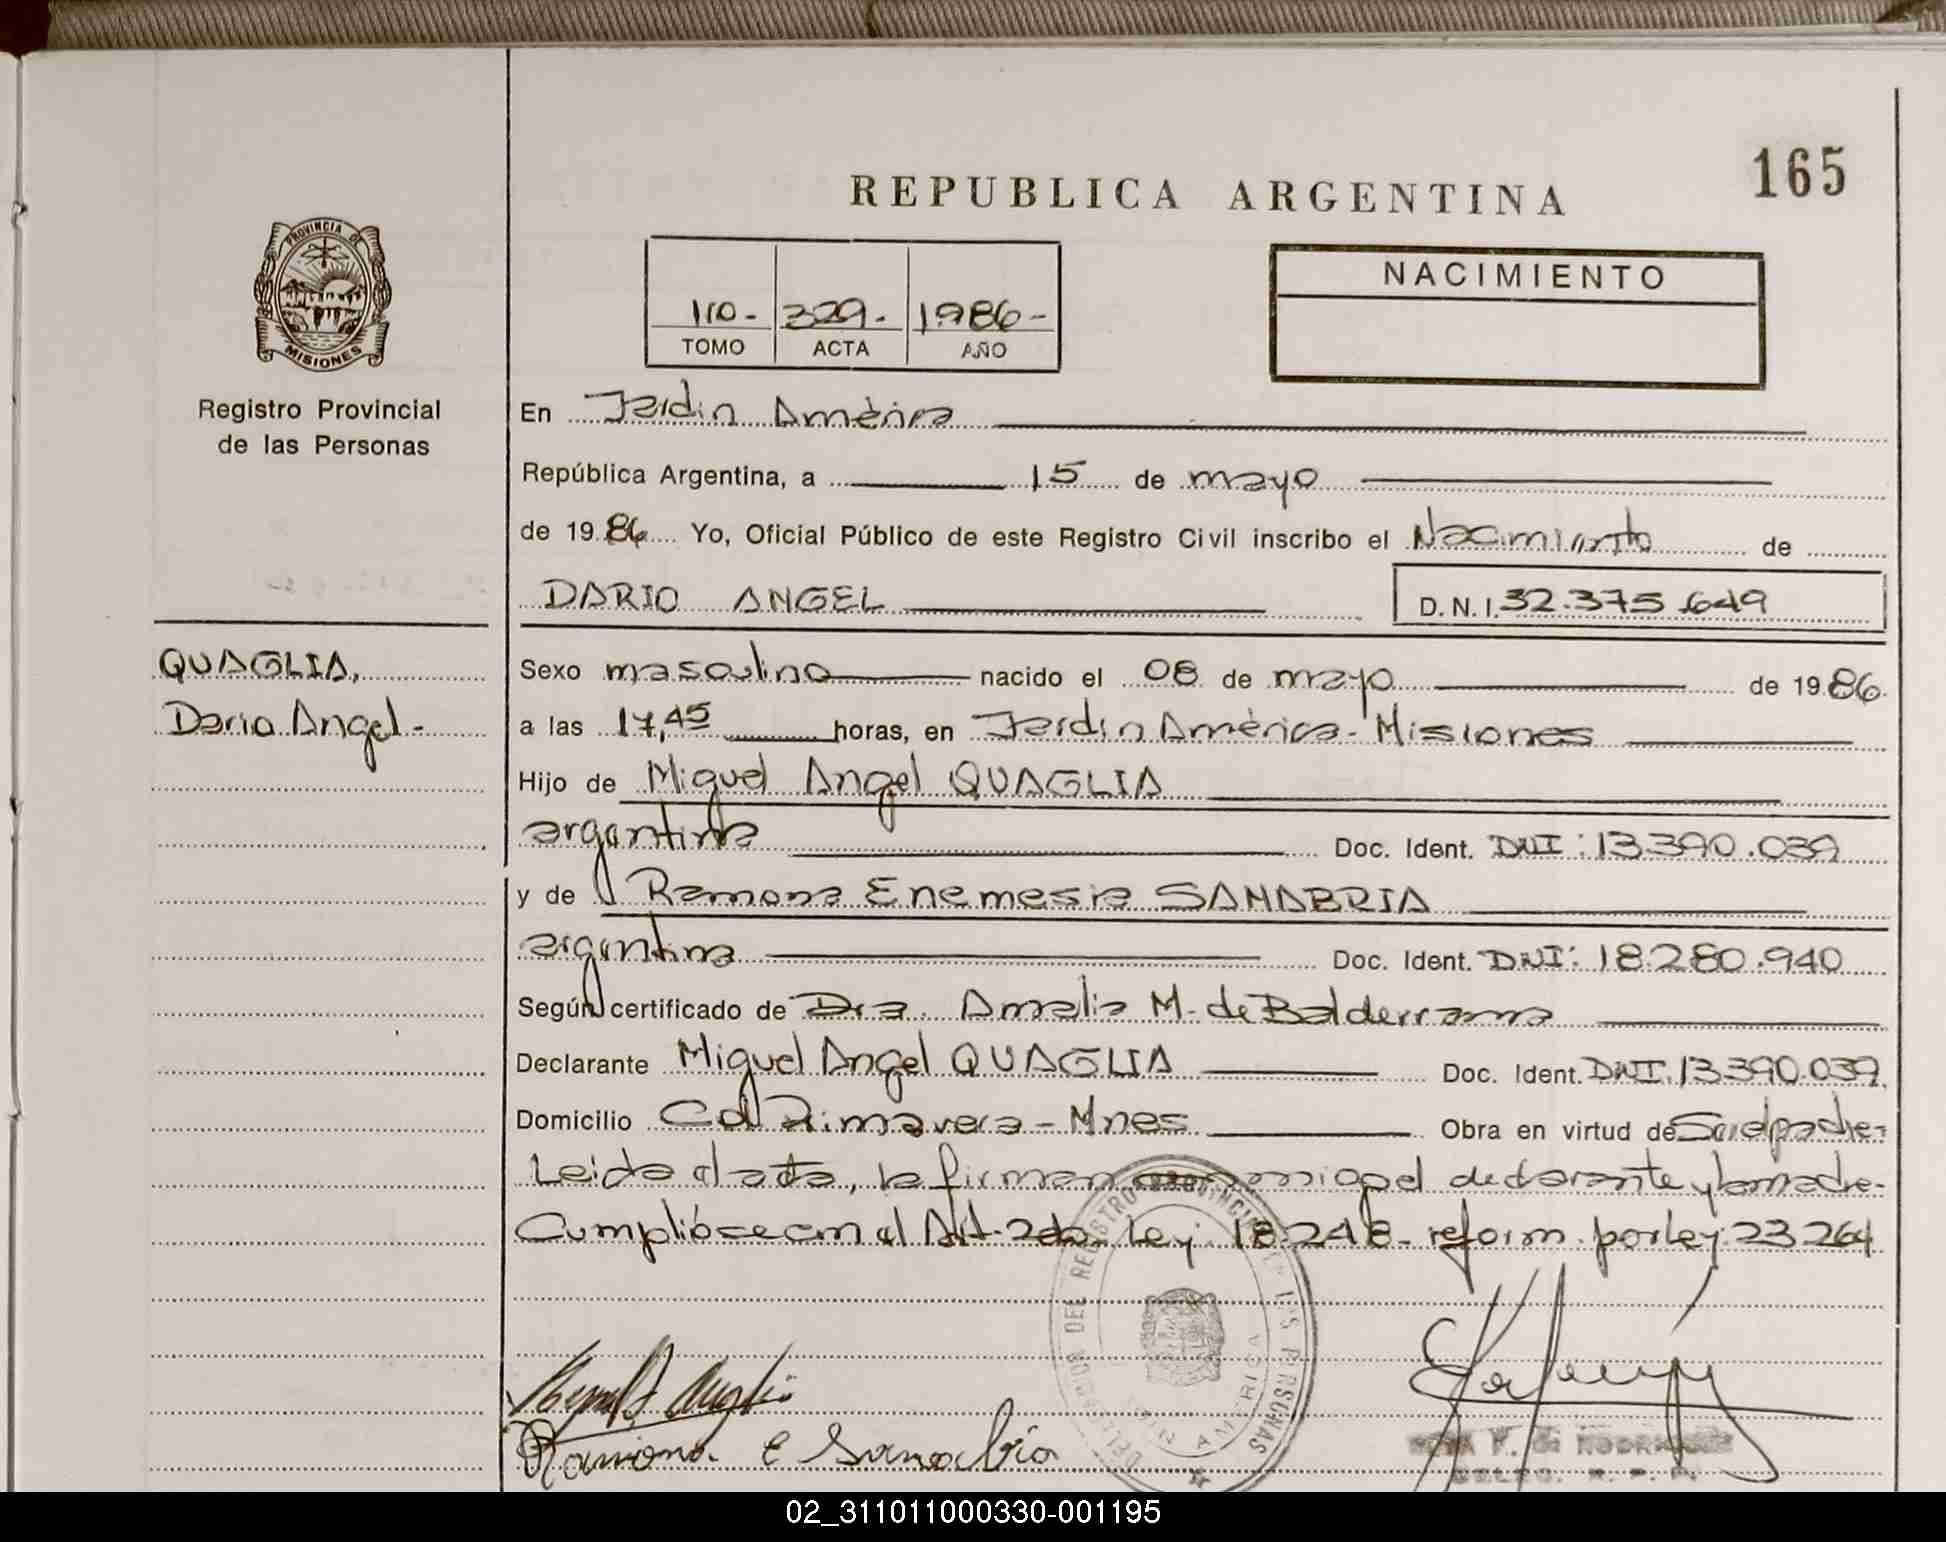 165
REPUBLICA ARGENTINA
PROVINCIA DE
MISIONES
Registro Provincial
de las Personas
110- 329- 1986-
TOMO ACTA AÑO
NACIMIENTO
En Jardin América
República Argentina, a 15 de mayo
de 1986 Yo, Oficial Público de este Registro Civil inscribo el Nacimiento de
DARIO ANGEL D.N.I. 32.375.649
QUAGLIA,
Dario Angel-
Sexo masculino nacido el 08 de mayo de 1986.
a las 17,45 horas, en Jardin América - Misiones
Hijo de Miguel Angel QUAGLIA
argentina Doc. Ident. DNI: 13.390.039
y de Ramona Enemesia SANABRIA
argentina Doc. Ident. DNI: 18.280.940
Según certificado de Dra. Amalia M. de Balderrama
Declarante Miguel Angel QUAGLIA Doc. Ident. DNI. 13.390.039.
Domicilio Cd Primavera - Mnes Obra en virtud de Ser el padre-
Leida el acta, la firman conmigo el declarante y la madre-
Cumplióse con el Art. 2do. Ley 18.248- reform. por ley 23.264
Ramona E Sanabria
DEL REGISTRO PROVINCIAL DE LAS PERSONAS
JARDIN AMERICA
DE RODRIGUEZ
02_311011000330-001195